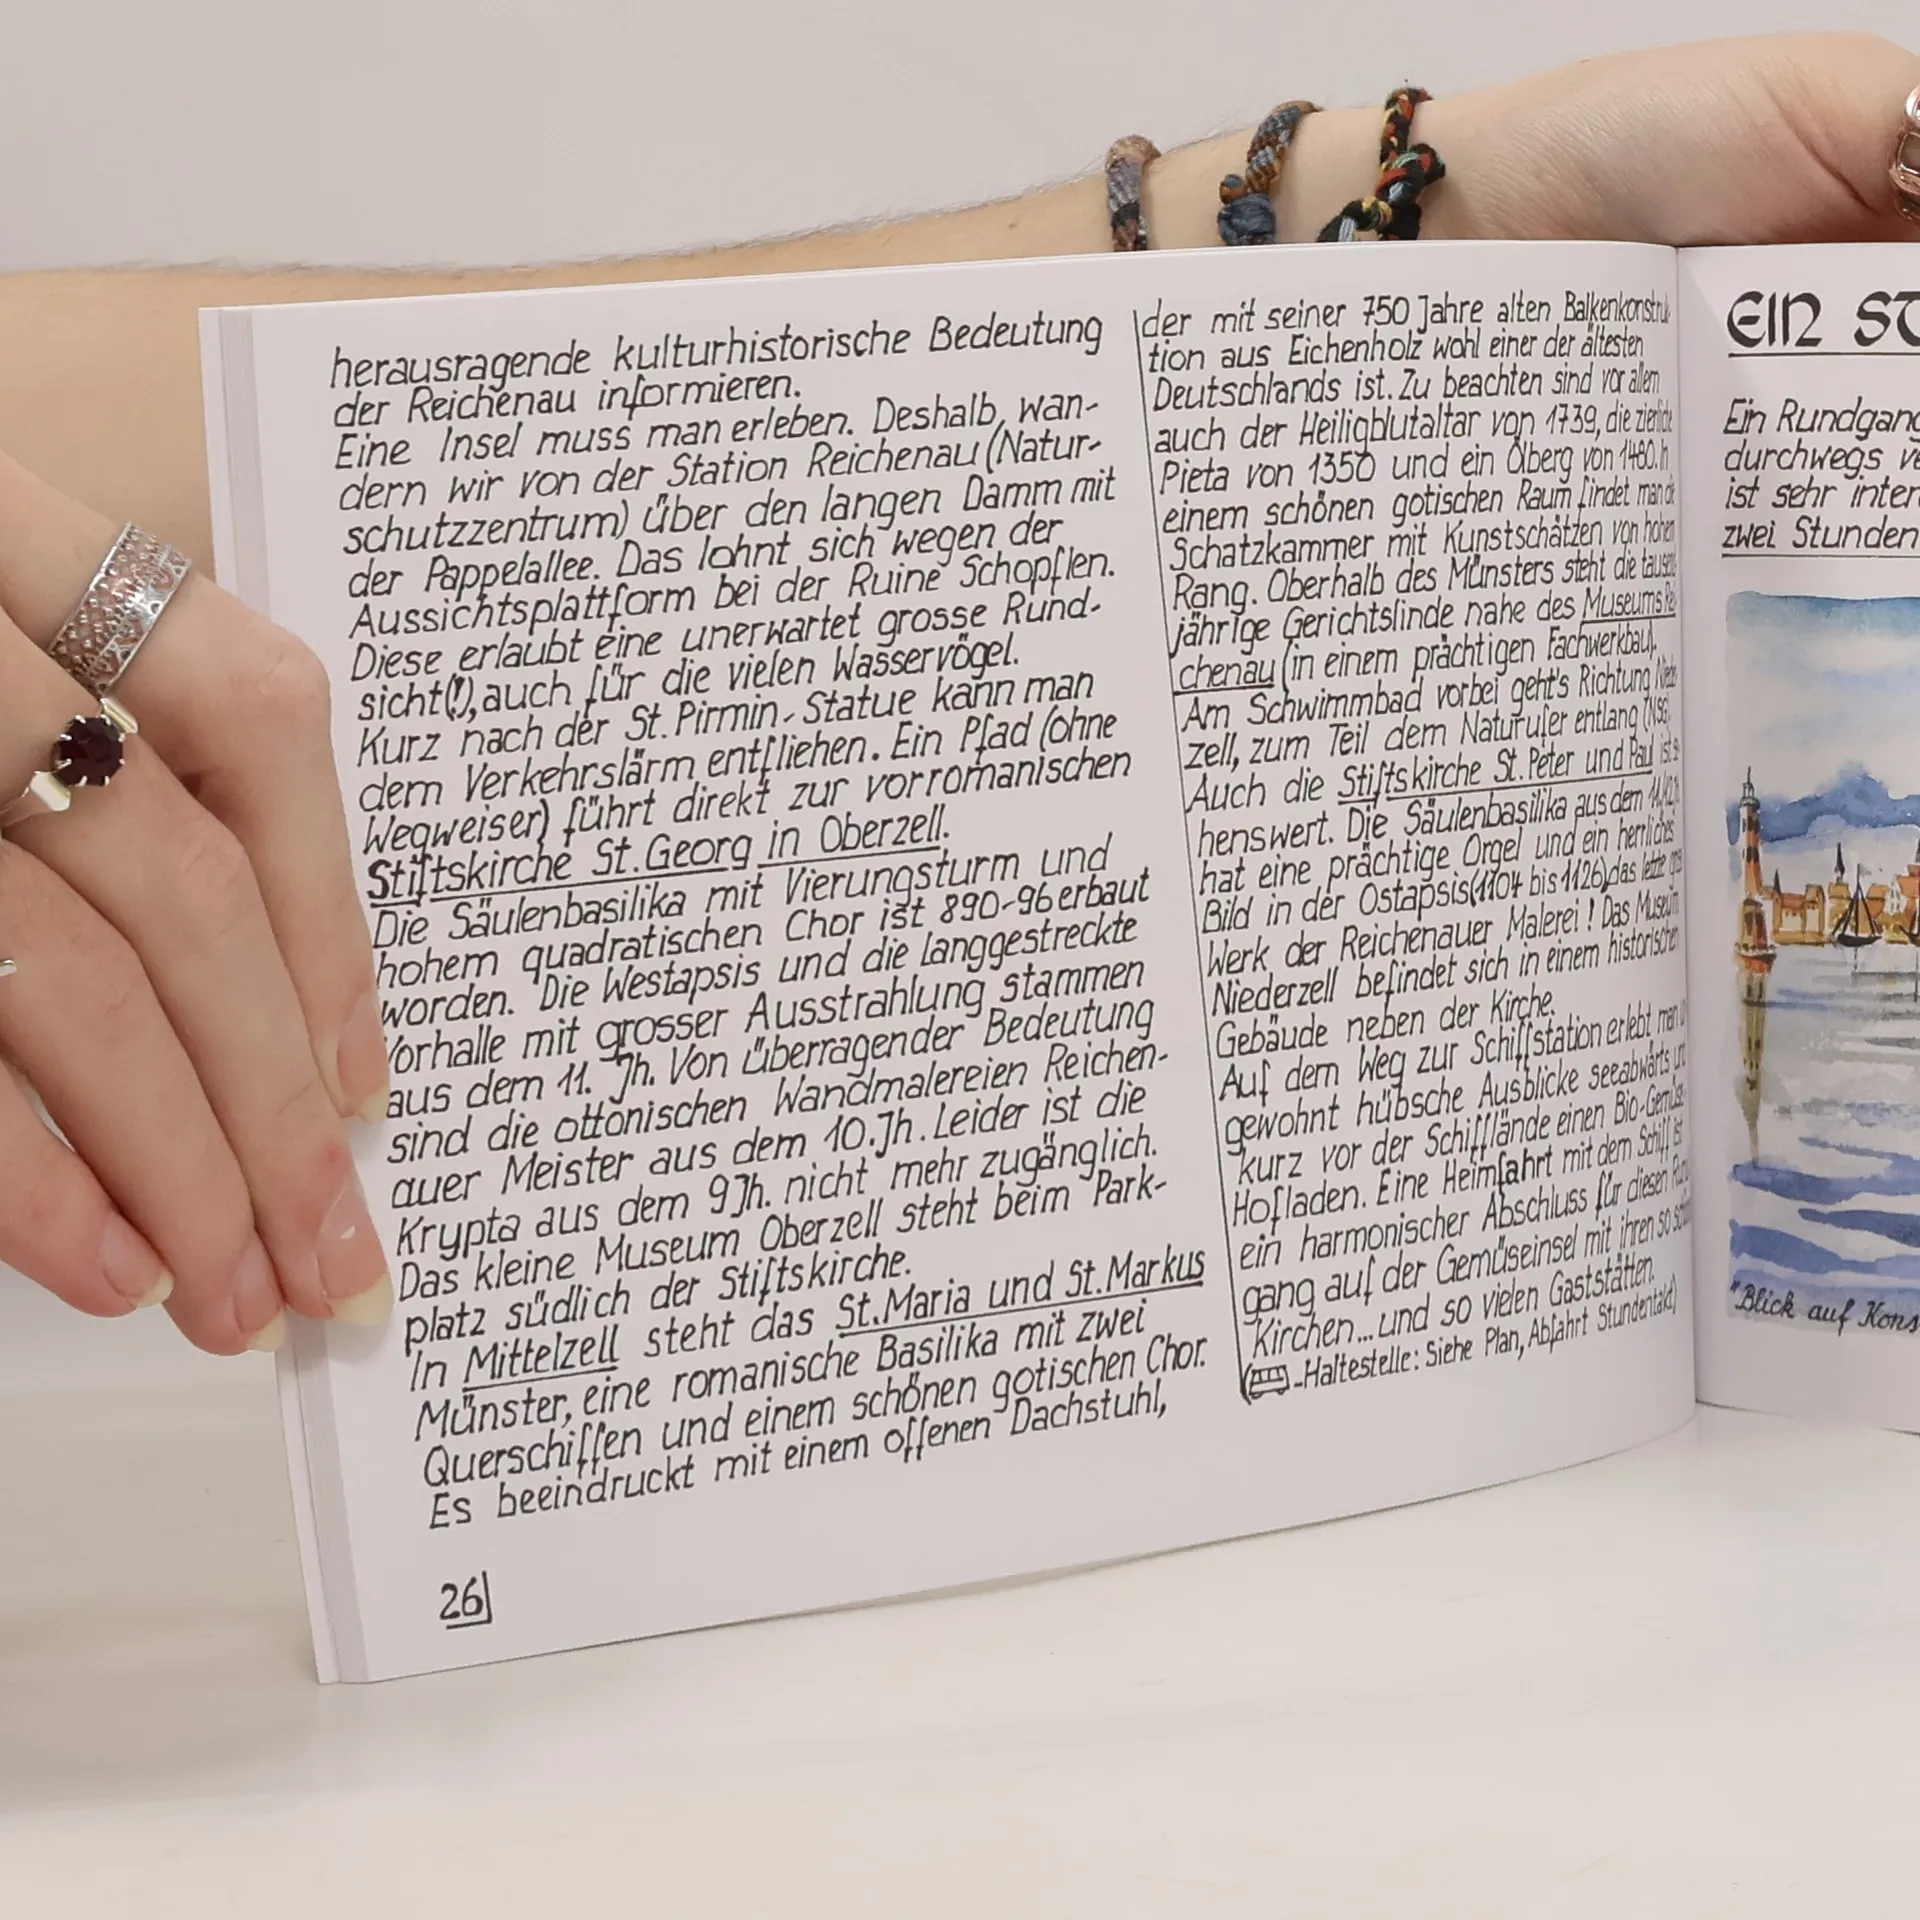 herausragende kulturhistorische Bedeutung
der Reichenau informieren.
Eine Insel muss man erleben. Deshalb wan-
dern wir von der Station Reichenau (Natur-
schutzzentrum) über den langen Damm mit
der Pappelallee. Das lohnt sich wegen der
Aussichtsplattform bei der Ruine Schopflen.
Diese erlaubt eine unerwartet grosse Rund-
sicht(!), auch für die vielen Wasservögel.
Kurz nach der St. Pirmin-Statue kann man
dem Verkehrslärm entfliehen. Ein Pfad (ohne
Wegweiser) führt direkt zur vorromanischen
Stiftskirche St. Georg in Oberzell.
Die Säulenbasilika mit Vierungsturm und
hohem quadratischen Chor ist 890-96 erbaut
worden. Die Westapsis und die langgestreckte
Vorhalle mit grosser Ausstrahlung stammen
aus dem 11. Jh. Von überragender Bedeutung
sind die ottonischen Wandmalereien Reichen-
auer Meister aus dem 10. Jh. Leider ist die
Krypta aus dem 9Jh. nicht mehr zugänglich.
Das kleine Museum Oberzell steht beim Park-
platz südlich der Stiftskirche.
In Mittelzell steht das St. Maria und St. Markus
Münster, eine romanische Basilika mit zwei
Querschiffen und einem schönen gotischen Chor.
Es beeindruckt mit einem offenen Dachstuhl,
26
der mit seiner 750 Jahre alten Balkenkonstruk
tion aus Eichenholz wohl einer der ältesten
Deutschlands ist. Zu beachten sind vor allem
auch der Heiligblutaltar von 1739, die zierliche
Pieta von 1350 und ein Ölberg von 1480. In
einem schönen gotischen Raum findet man die
Schatzkammer mit Kunstschätzen von hohem
Rang. Oberhalb des Münsters steht die tausend
jährige Gerichtslinde nahe des Museums Rei
chenau (in einem prächtigen Fachwerkbau).
Am Schwimmbad vorbei geht's Richtung Nieder
zell, zum Teil dem Naturufer entlang (NSG).
Auch die Stiftskirche St. Peter und Paul ist se
henswert. Die Säulenbasilika aus dem 11./12.
hat eine prächtige Orgel und ein herrliches
Bild in der Ostapsis (1104 bis 1126), das letzte
Werk der Reichenauer Malerei! Das Museum
Niederzell befindet sich in einem historischen
Gebäude neben der Kirche.
Auf dem Weg zur Schiffstation erlebt man
gewohnt hübsche Ausblicke seeabwärts und
kurz vor der Schifflände einen Bio-Gemüse-
Hofladen. Eine Heimfahrt mit dem Schiff ist
ein harmonischer Abschluss für diesen
gang auf der Gemüseinsel mit ihren so
Kirchen... und so vielen Gaststätten.
-Haltestelle: Siehe Plan, Abfahrt Stundentakt)
EIN
Ein Rundgang
durchwegs
ist sehr
zwei Stunden
"Blick auf